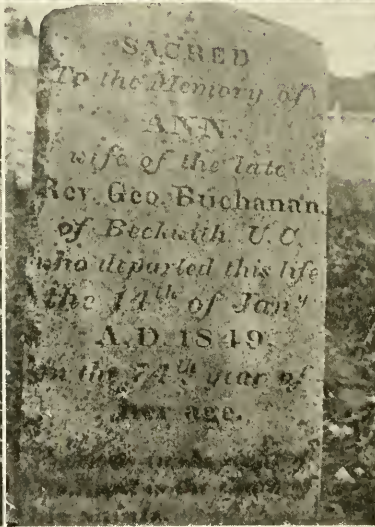 SACRED
To the Memory of
ANN.
wife of the late
Rev. Geo. Buchanan,
of Beckwith U.C.
who departed this life
the 14th of Jany
A.D. 1849.
in the 74th year of
her age.